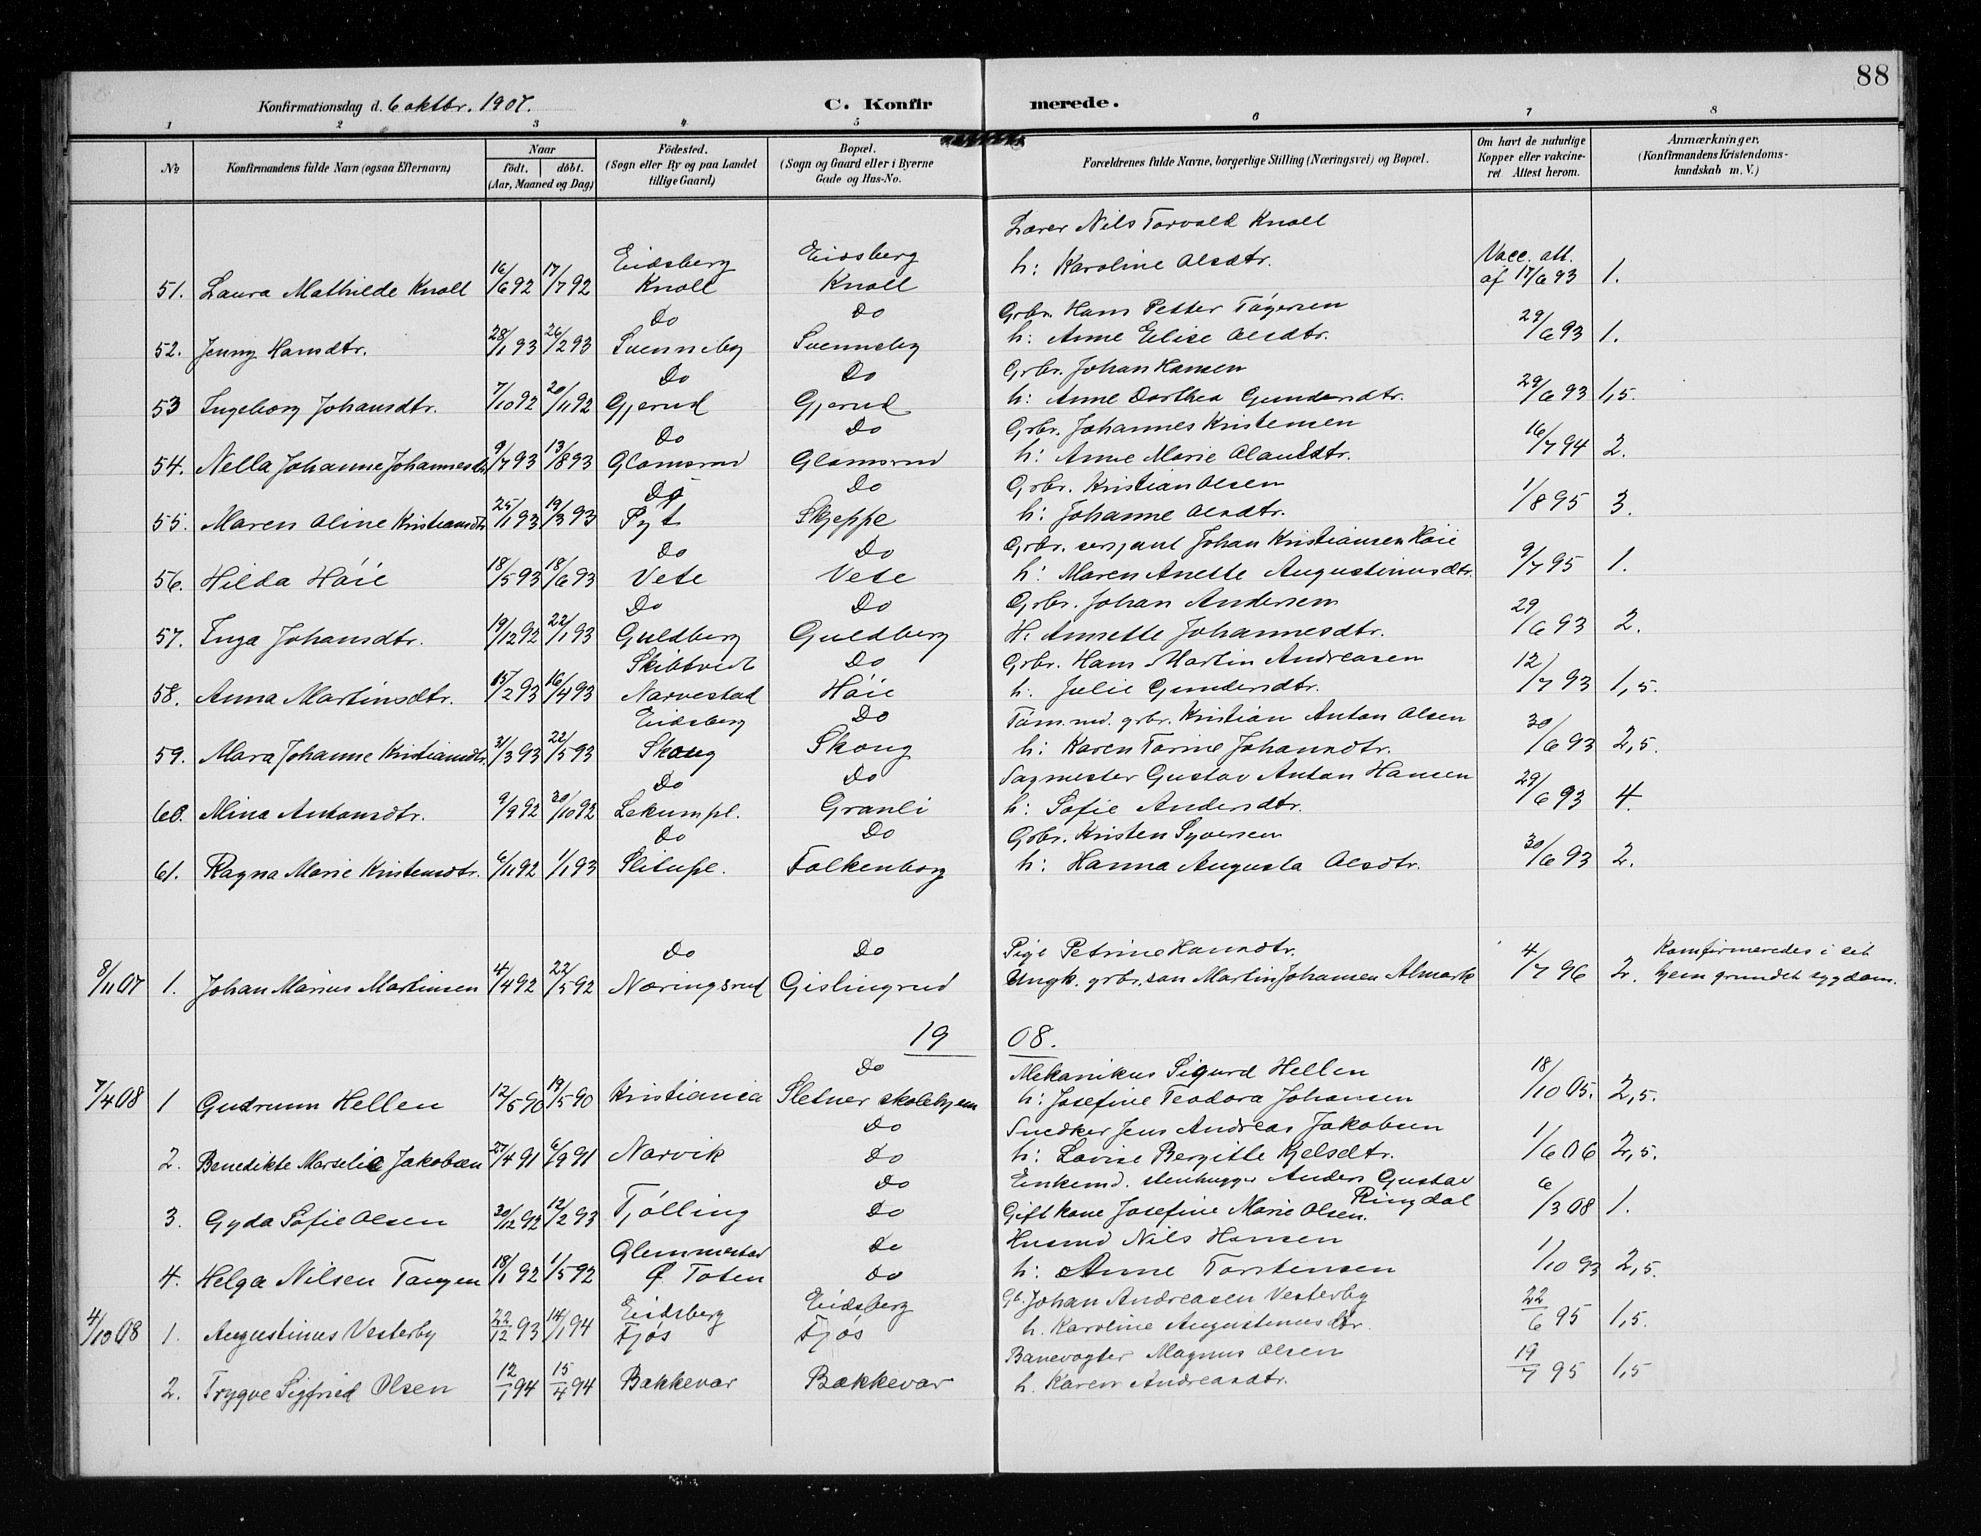 88
Konfirmationsdag d. 6 oktbr. 1907.
C. Konfirmerede.
1 2 3 4 5 6 7 8
No
Konfirmandens fulde Navn (ogsaa Efternavn)
Naar
født. døbt.
(Aar, Maaned og Dag)
Fødested.
(Sogn eller By og paa Landet
tillige Gaard)
Bopæl.
(Sogn og Gaard eller i Byerne
Gade og Hus-No.
Forældrenes fulde Navne, borgerlige Stilling (Næringsvei) og Bopæl.
Om havt de naturlige
Kopper eller vakcine-
ret Attest herom.
Anmærkninger,
(Konfirmandens Kristendoms-
kundskab m. V.)
Lærer Nils Torvald Knoll
Eidsberg Eidsberg h: Karoline Olsdtr. Vacc. att.
51. Laura Mathilde Knoll 16/6 92 17/7 92 Knoll Knoll af 17/6 93 1.
Do Do Grbr. Hans Petter Tøgersen
52. Jenny Hansdtr. 28/1 93 26/2 93 Svenneby Svenneby h: Anne Elise Olsdtr. 29/6 93 1.
Do Do Grbr. Johan Hansen
53 Ingeborg Johansdtr. 7/10 92 20/11 92 Gjerud Gjerud h: Anne Dorthea Gundersdtr. 29/6 93 1,5.
Do Do Grbr. Johannes Kristensen
54. Nella Johanne Johannesdtr 9/7 93 13/8 93 Glomsrud Glomsrud h: Anne Marie Olausdtr. 16/7 94 2.
Do Do Grbr. Kristian Olsen
55. Maren Oline Kristiansdtr 25/1 93 19/3 93 Pyt Skjeppe h: Johanne Olsdtr. 1/8 95 3.
Do Do Grbr. sersjant Johan Kristiansen Høie
56. Hilda Høie 18/5 93 18/6 93 Vete Vete h: Maren Anette Augustinusdtr. 9/7 95 1.
Do Do Grbr. Johan Andersen
57. Inga Johansdtr. 19/12 92 22/1 93 Guldberg Guldberg H: Annette Johannesdtr. 29/6 93 2.
Skibtvedt Do Grbr. Hans Martin Andreasen
58. Anna Martinsdtr. 15/2 93 16/4 93 Narvestad Høie h. Julie Gundersdtr. 12/7 93 1,5.
Eidsberg Do Tømmd. grbr. Kristian Anton Olsen
59. Mara Johanne Kristiansdtr. 31/3 93 22/5 93 Skoug Skoug h: Karen Torine Johansdtr. 30/6 93 2,5.
Do Do Sagmester Gustav Anton Hansen
60. Mina Antonsdtr. 9/9 92 30/10 92 Lekumpl. Granli h: Sofie Andersdtr. 29/6 93 4.
Do Do Grbr. Kristen Syversen
61. Ragna Marie Kristensdtr. 6/11 92 1/1 93 Slitupl. Falkenborg h: Hanna Augusta Olsdtr. 30/6 93 2.
Do Do Pige Petrine Hansdtr. Konfirmeredes i sit
8/11 07 1. Johan Marius Martinsen 4/4 92 22/5 92 Næringsrud Gislingrud Ungk. grbr. søn Martin Johansen Almark 4/7 96 2. hjem grundet sygdom.
1908.
Do Mekanikus Sigurd Hellen
7/4 08 1 Gudrunn Hellen 12/5 90 19/5 90 Kristiania Sletner skolehjem h: Josefine Teodora Johansen 18/10 05. 2,5.
Do Snedker Jens Andreas Jakobsen
2. Benedikte Marselie Jakobsen 27/4 91 6/9 91 Narvik Do h: Lovise Bergitte Kjelsdtr. 1/6 06 2,5.
Do Enkemd. stenhugger Anders Gustav
Ringdal
3. Gyda Sofie Olsen 30/12 92 12/2 93 Tjølling Do Gift kone Josefine Marie Olsen. 6/3 08 1.
Glemmestad Do Husmd Nils Hansen
4. Helga Nilsen Tangen 18/1 92 1/5 92 Ø Toten Do h: Anne Torstensen 1/10 93 2,5.
Eidsberg Eidsberg Gb. Johan Andreasen Vesterby
4/10 08 1. Augustinus Vesterby 22/12 93 14/1 94 Fjøs Fjøs h. Karoline Augustinusdtr. 22/6 95 1,5.
Banevogter Magnus Olsen
2. Trygve Sigfried Olsen 12/1 94 15/4 94 Bakkevar Bakkevar h. Karen Andreasdtr. 19/7 95 1,5